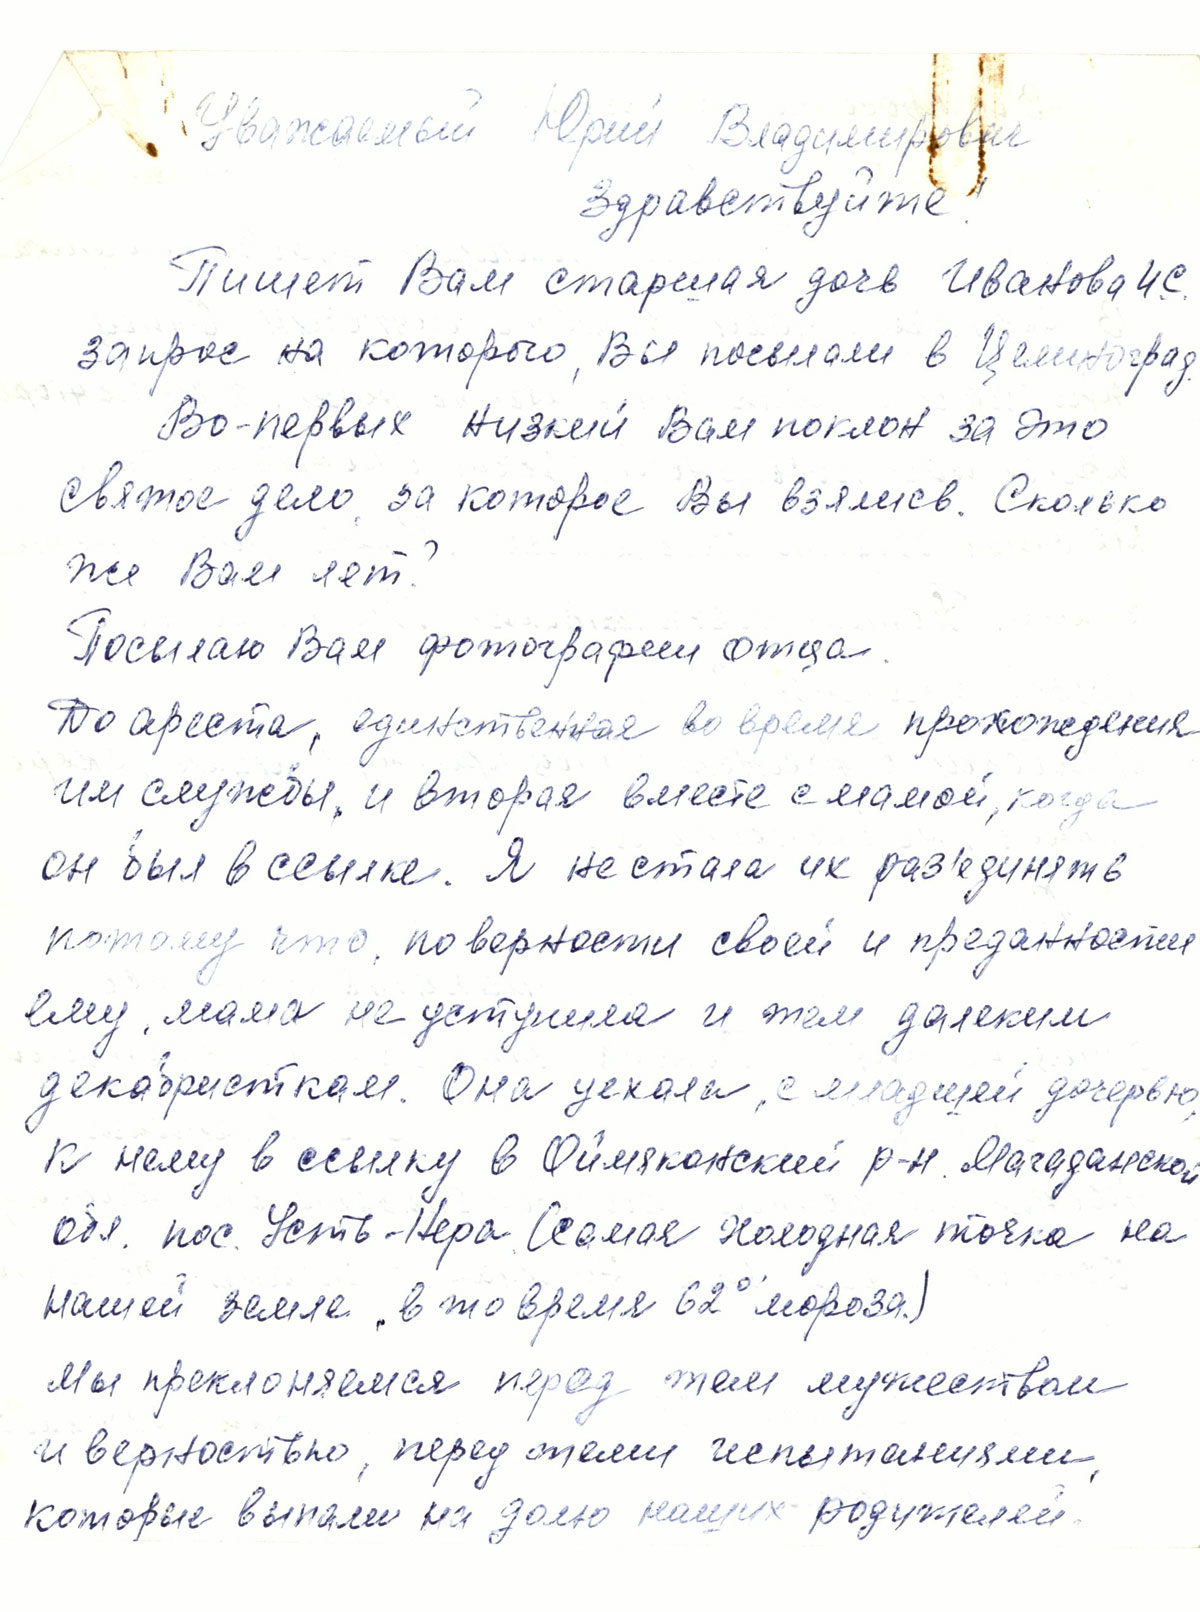 Уважаемый Юрий Владимирович
Здравствуйте!
Пишет Вам старшая дочь Иванова И.С.
запрос на которого, Вы посылали в Целиноград.
Во-первых низкий Вам поклон за это
святое дело, за которое Вы взялись. Сколько
же Вам лет?
Посылаю Вам фотографии отца.
До ареста, единственная во время прохождения
им службы, и вторая вместе с мамой, когда
он был в ссылке. Я не стала их раз'единять
потому что, по верности своей и преданности
ему, мама не уступила и тем далеким
декабристкам. Она уехала, с младшей дочерью,
к нему в ссылку в Оймяконский р-н. Магаданской
обл. пос. Усть-Нера (самая холодная точка на
нашей земле, в то время 62° мороза.)
Мы преклоняемся перед тем мужеством
и верностью, перед теми испытаниями,
которые выпали на долю наших родителей.